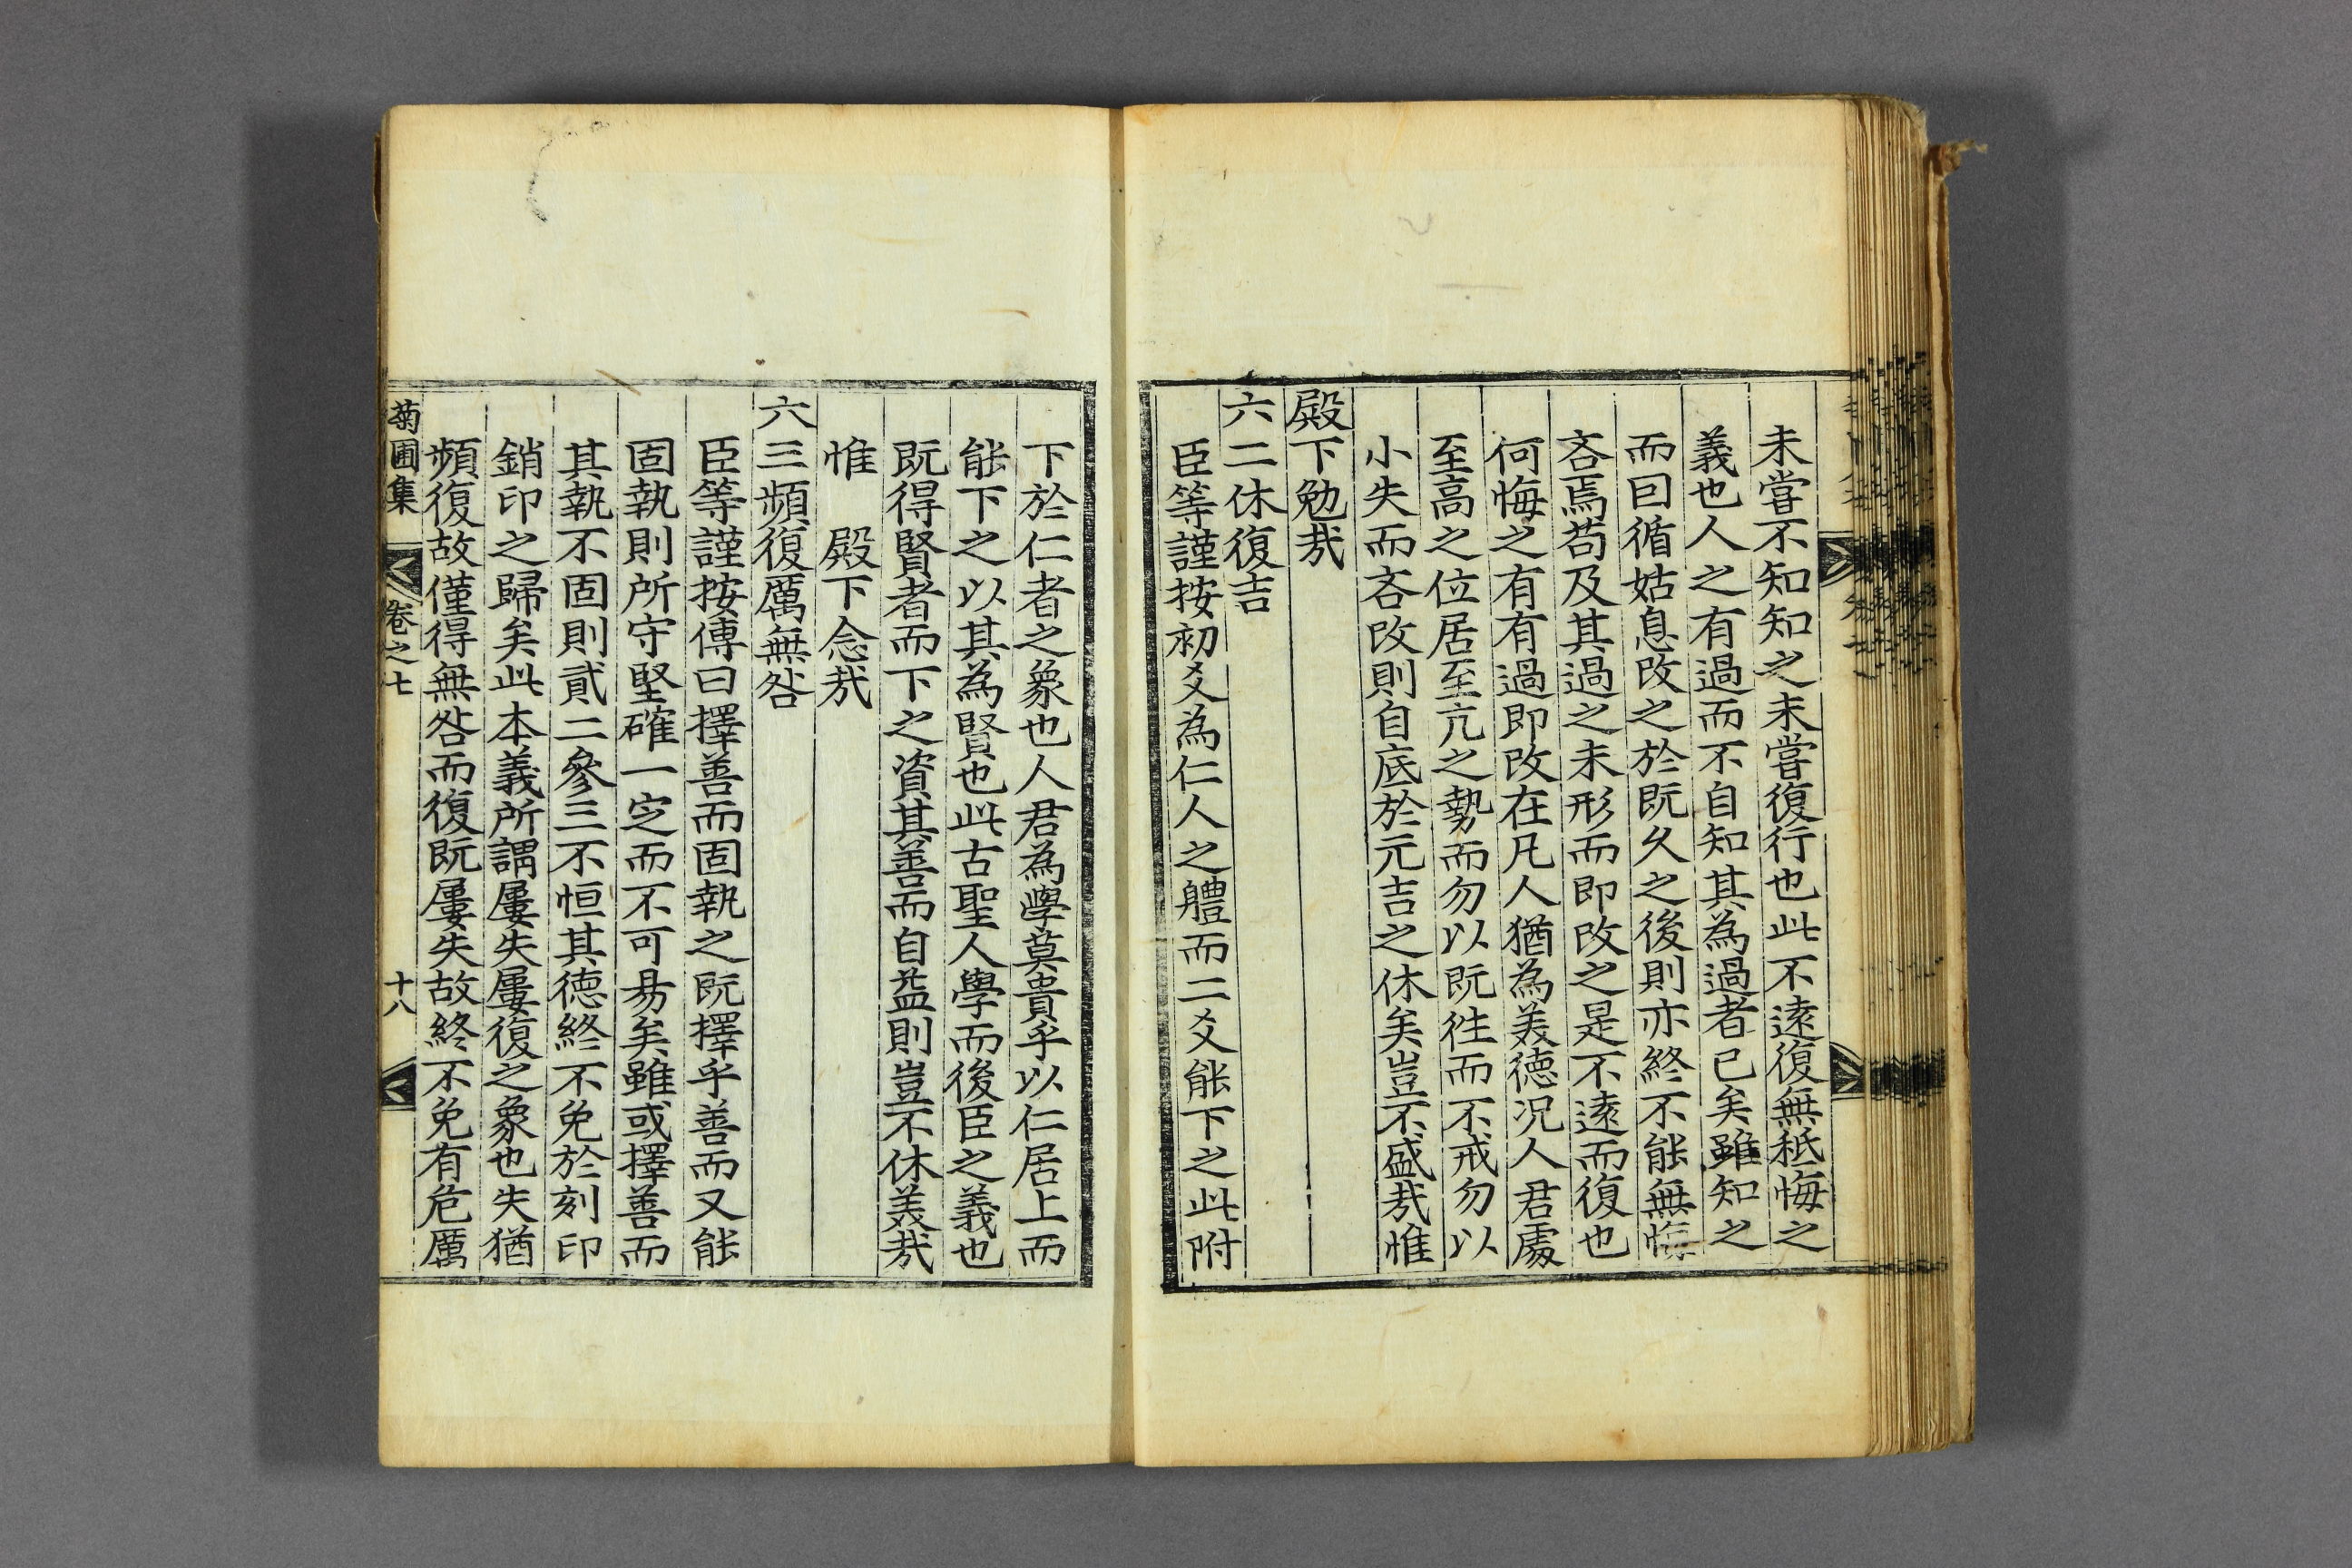 未嘗不知知之未嘗復行也此不遠復無秪悔之
義也人之有過而不自知其為過者已矣雖知之
而曰循姑息改之於既久之後則亦終不能無悔
吝焉苟及其過之未形而即改之是不遠而復也
何悔之有有過即改在凡人猶為美德况人君處
至高之位居至亢之勢而勿以既徃而不戒勿以
小失而吝改則自底於元吉之休矣豈不盛㢤惟
殿下勉㢤
六二休復吉
臣等謹按初爻為仁人之軆而二爻能下之此附
下於仁者之象也人君為學莫貴乎以仁居上而
能下之以其為賢也此古聖人學而後臣之義也
既得賢者而下之資其善而自益則豈不休美㢤
惟　殿下念㢤
六三頻復厲無咎
臣等謹按傳曰擇善而固執之既擇乎善而又能
固執則所守堅確一定而不可易矣雖或擇善而
其執不固則貳二參三不恒其德終不免於刻印
銷印之歸矣此本義所謂屢失屢復之象也失猶
頻復故僅得無咎而復既屢失故終不免有危厲
菊圃集　卷之七　十八